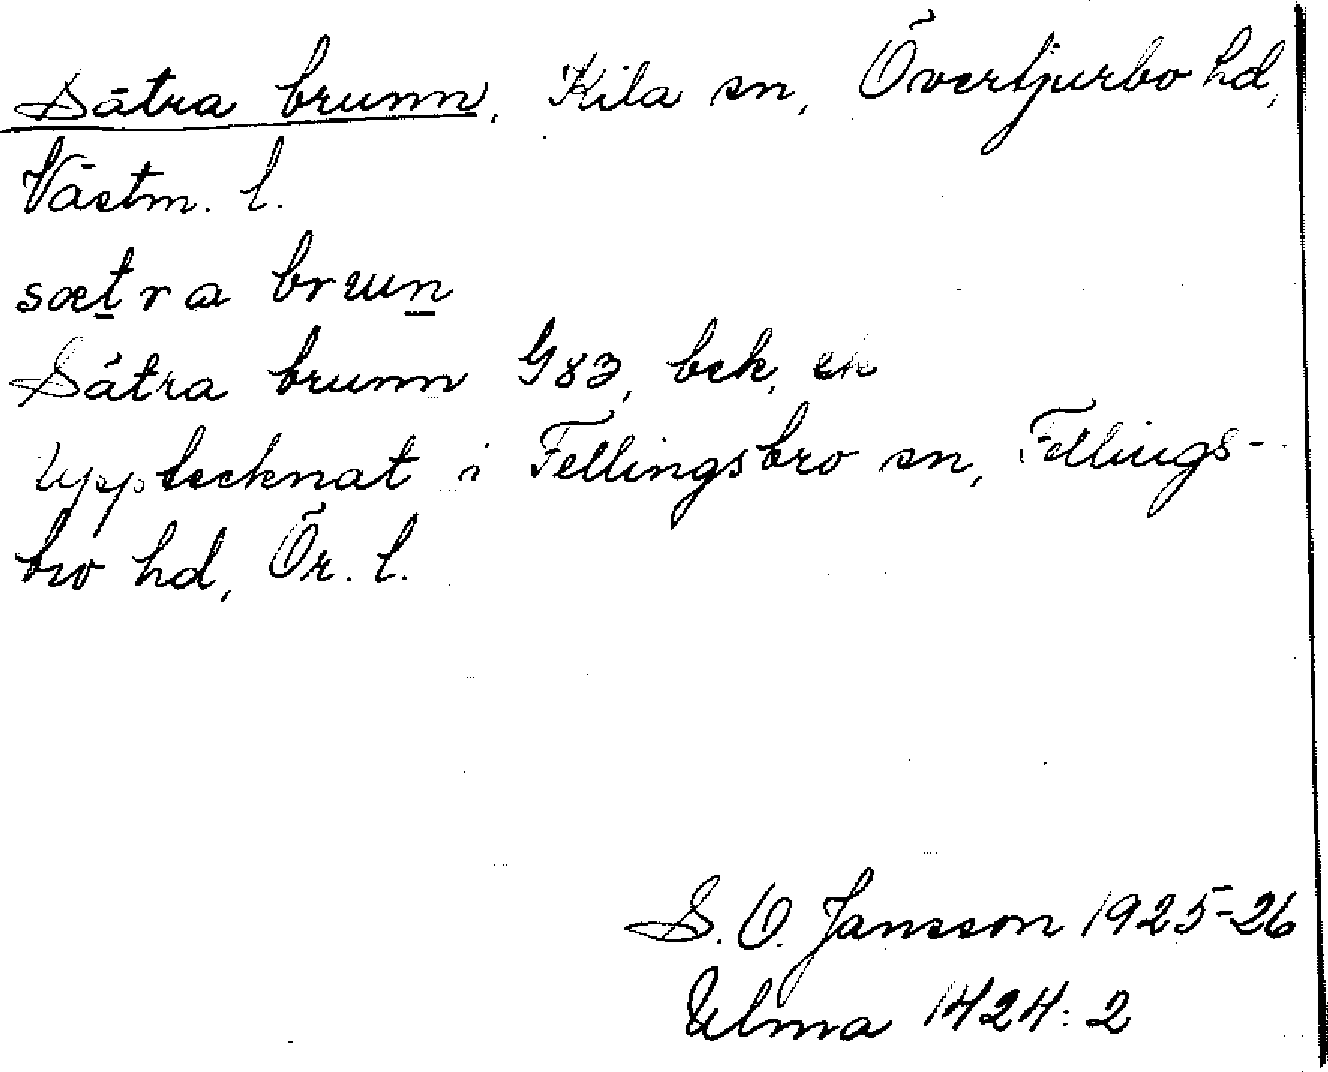 Sätra brunn, Kila sn, Övertjurbo hd,
Västm. l.
sætra brun
Sätra brunn G83, bek, ek
Upptecknat i Fellingsbro sn, Fellings-
bro hd, Ör. l.
S. O. Jansson 1925-26
Ulma 1424:2